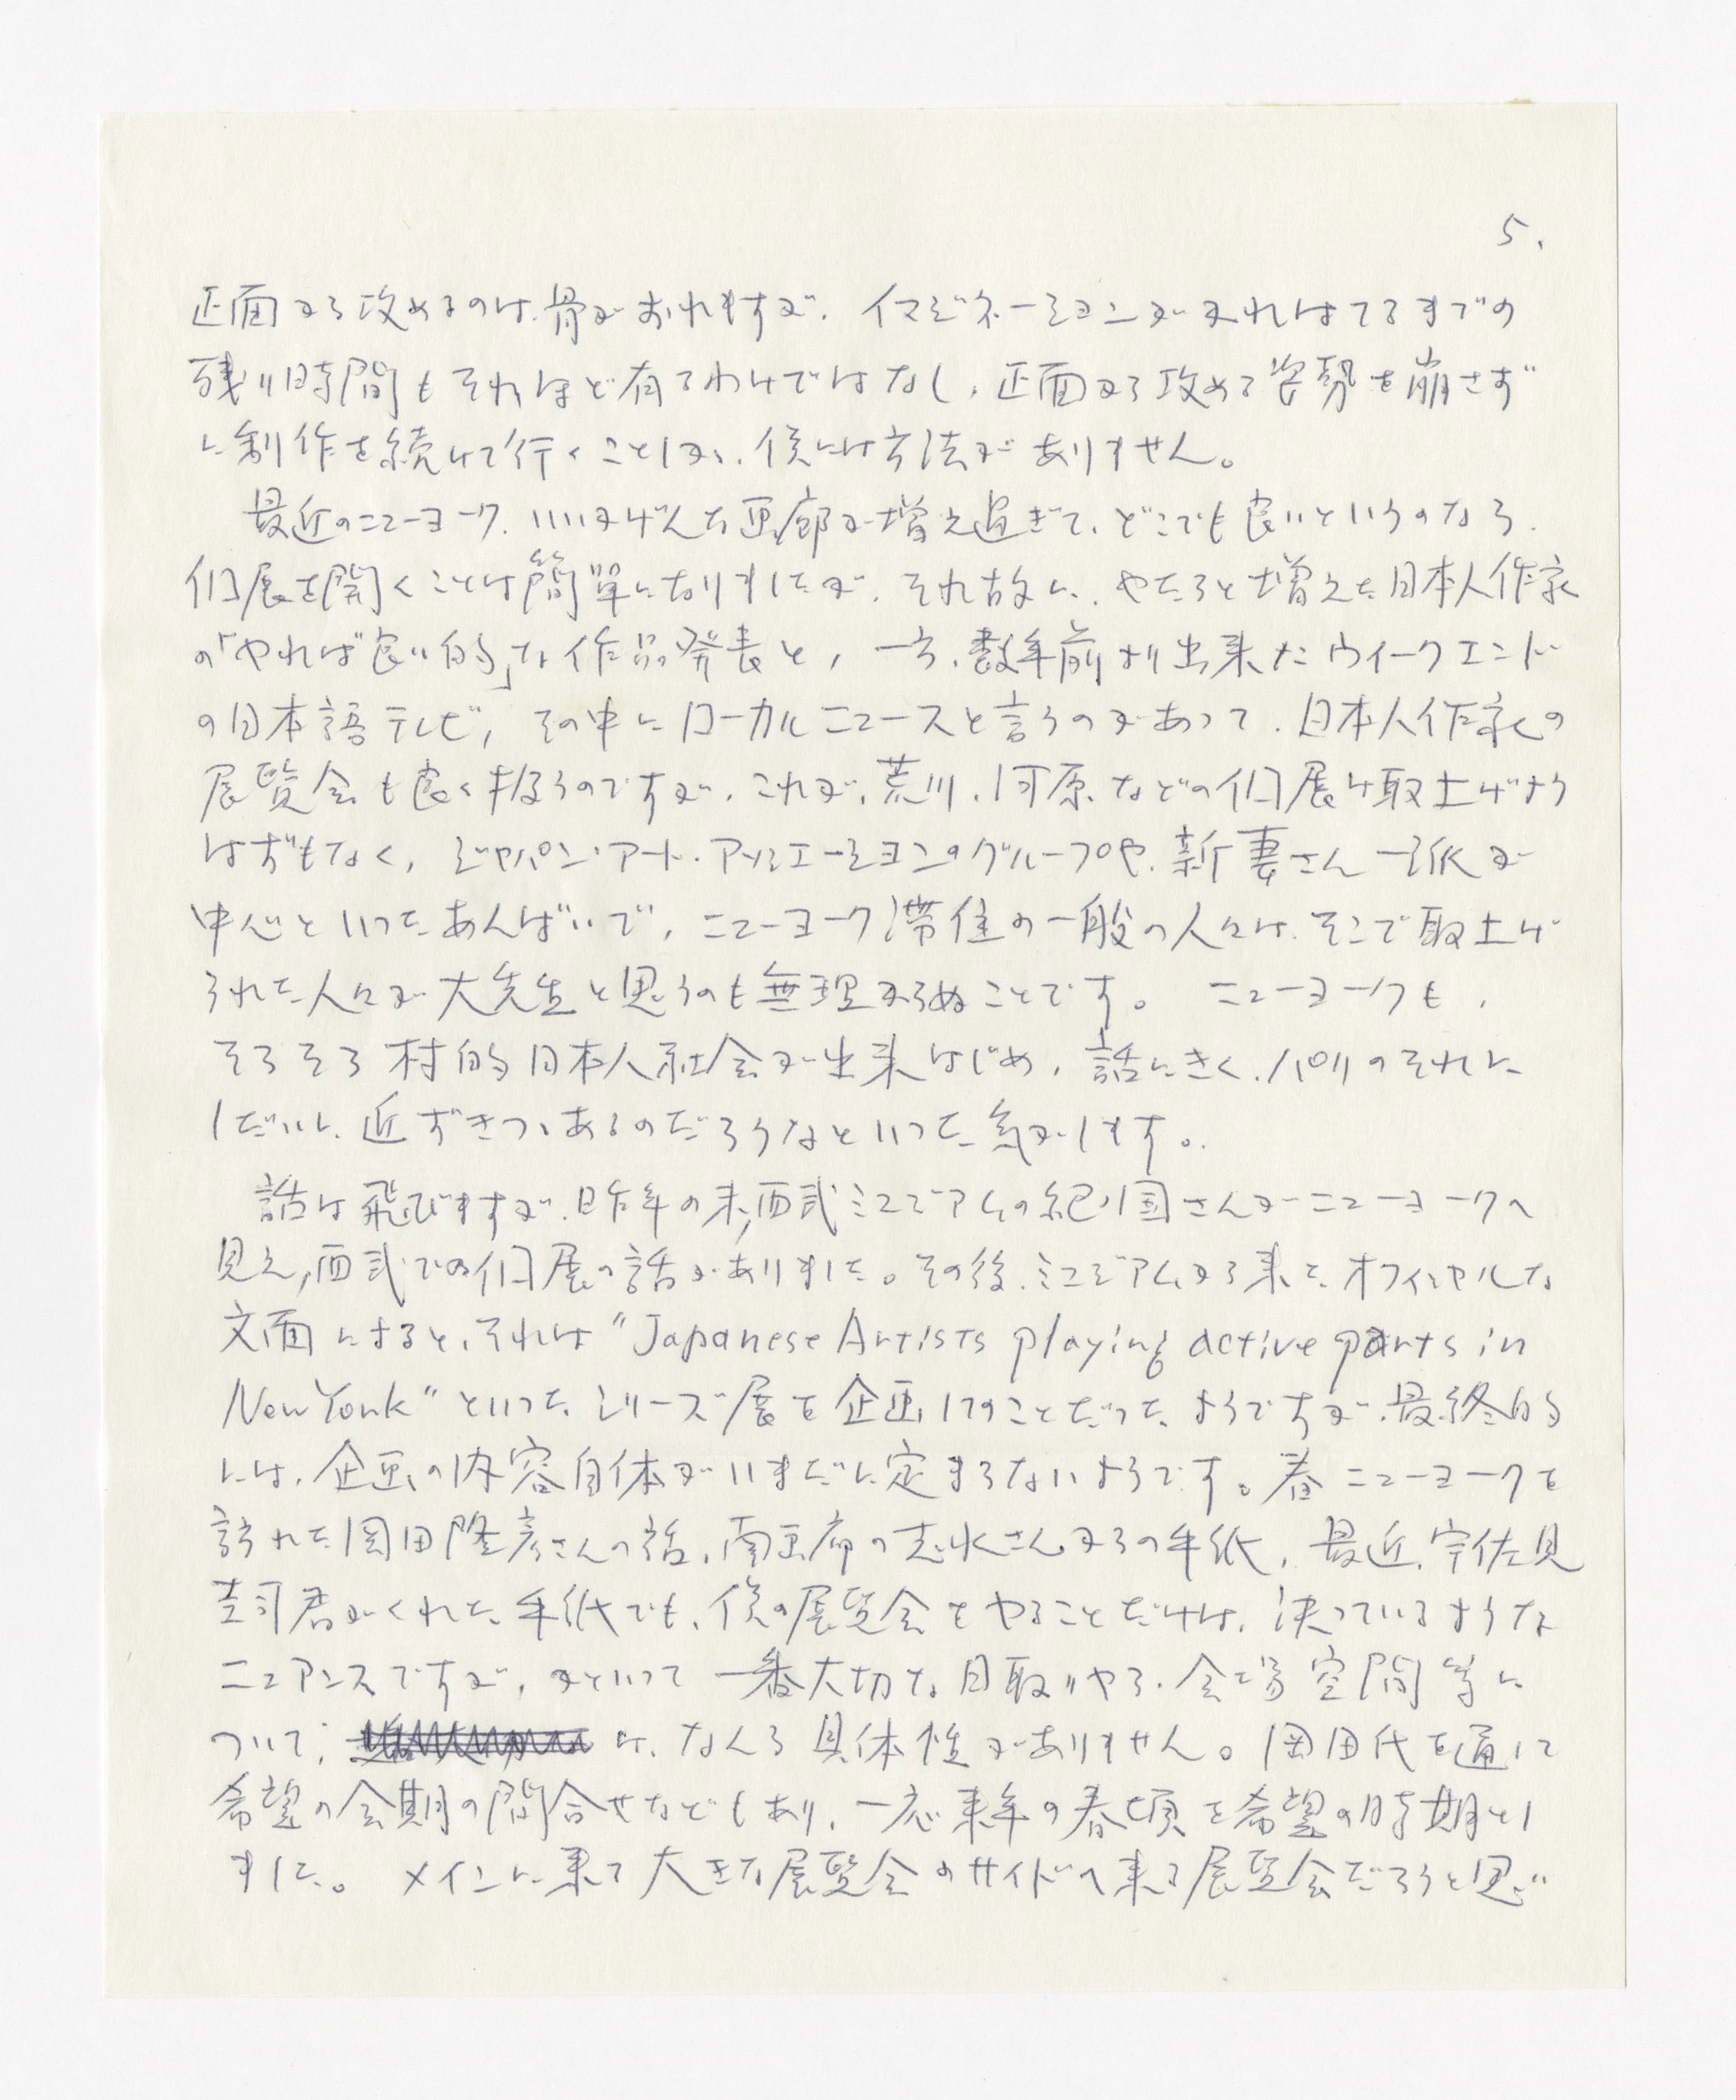 5.
正面から攻めるのは、骨がおれますが、イマジネーションがかれはてるまでの
残り時間もそれほど有るわけではなし、正面から攻める姿勢を崩さず
に制作を続けて行くことしか、僕には方法がありません。
最近のニューヨーク、いいかげんな画廊が増え過ぎて、どこでも良いというのなら、
個展を開くことは簡単になりましたが、それ故に、やたらと増えた日本人作家
の「やれば良い的」な作品発表と、一方、数年前より出来たウィークエンド
の日本語テレビ、その中にローカルニュースと言うのがあって、日本人作家の
展覧会も良く扱うのですが、これが、荒川、河原などの個展は取上げよう
はずもなく、ジャパン・アート・アソシエーションのグループや、新妻さん一派が
中心といったあんばいで、ニューヨーク滞住の一般の人々は、そこで取上げ
られた人々が大先生と思うのも無理からぬことです。 ニューヨークも、
そろそろ村的日本人社会が出来はじめ、話にきく、パリのそれに
しだいに、近ずきつゝあるのだろうなといった気がします。
話は飛びますが、昨年の末、西武ミュージアムの紀ノ国さんがニューヨークへ
見え、西武での個展の話がありました。その後、ミュージアムから来た、オフィシャルな
文面によると、それは"Japanese Artists playing active parts in
New York"といった、シリーズ展を企画してのことだった、ようですが、最終的
には、企画の内容自体がいまだに定まらないようです。春ニューヨークを
訪れた岡田隆彦さんの話、南画廊の志水さんからの手紙、最近、宇佐見
圭司君がくれた、手紙でも、僕の展覧会をやることだけは、決っているような
ニュアンスですが、かといって一番大切な日取りやら、会場空間等に
ついて、は、なんら具体性がありません。岡田氏を通して
希望の会期の問合せなどもあり、一応来年の春頃を希望の時期とし
ました。 メインに乗て大きな展覧会のサイドへ来る展覧会だろうと思い